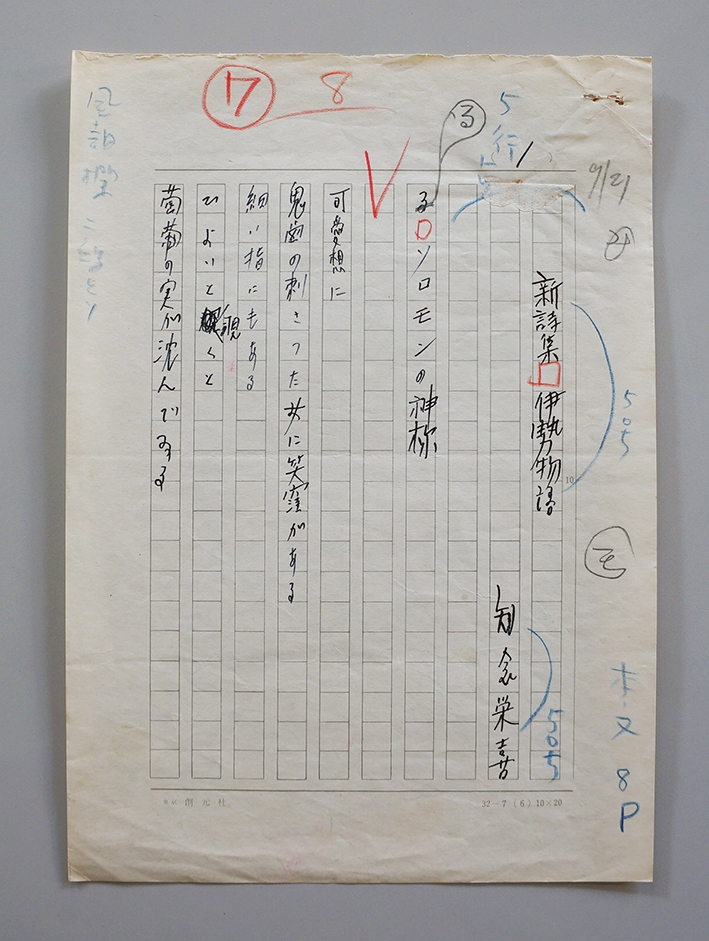 ⑰ 8
5行
新詩集 伊勢物語
知念栄喜
る
る ソロモンの神称
可愛想に
鬼歯の刺さった女に笑窪がある
細い指にもある
ひよいと覗くと
葡萄の実が沈んでゐる
9/21
505
505
本文 8P
創元社
32-7(6)10×20
10